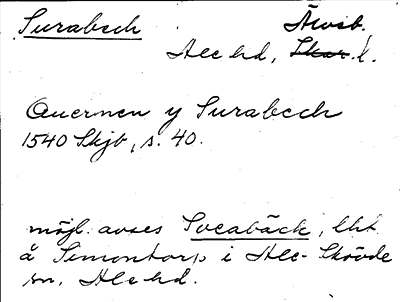 Surabech Älvsb.
Ale hd, Skar. l.
Quernen y Surabech
1540 Skjb, s. 40.
möjl. avses Sveabäck, lht
å Simontorp i Ale-Skövde
sn, Ale hd.